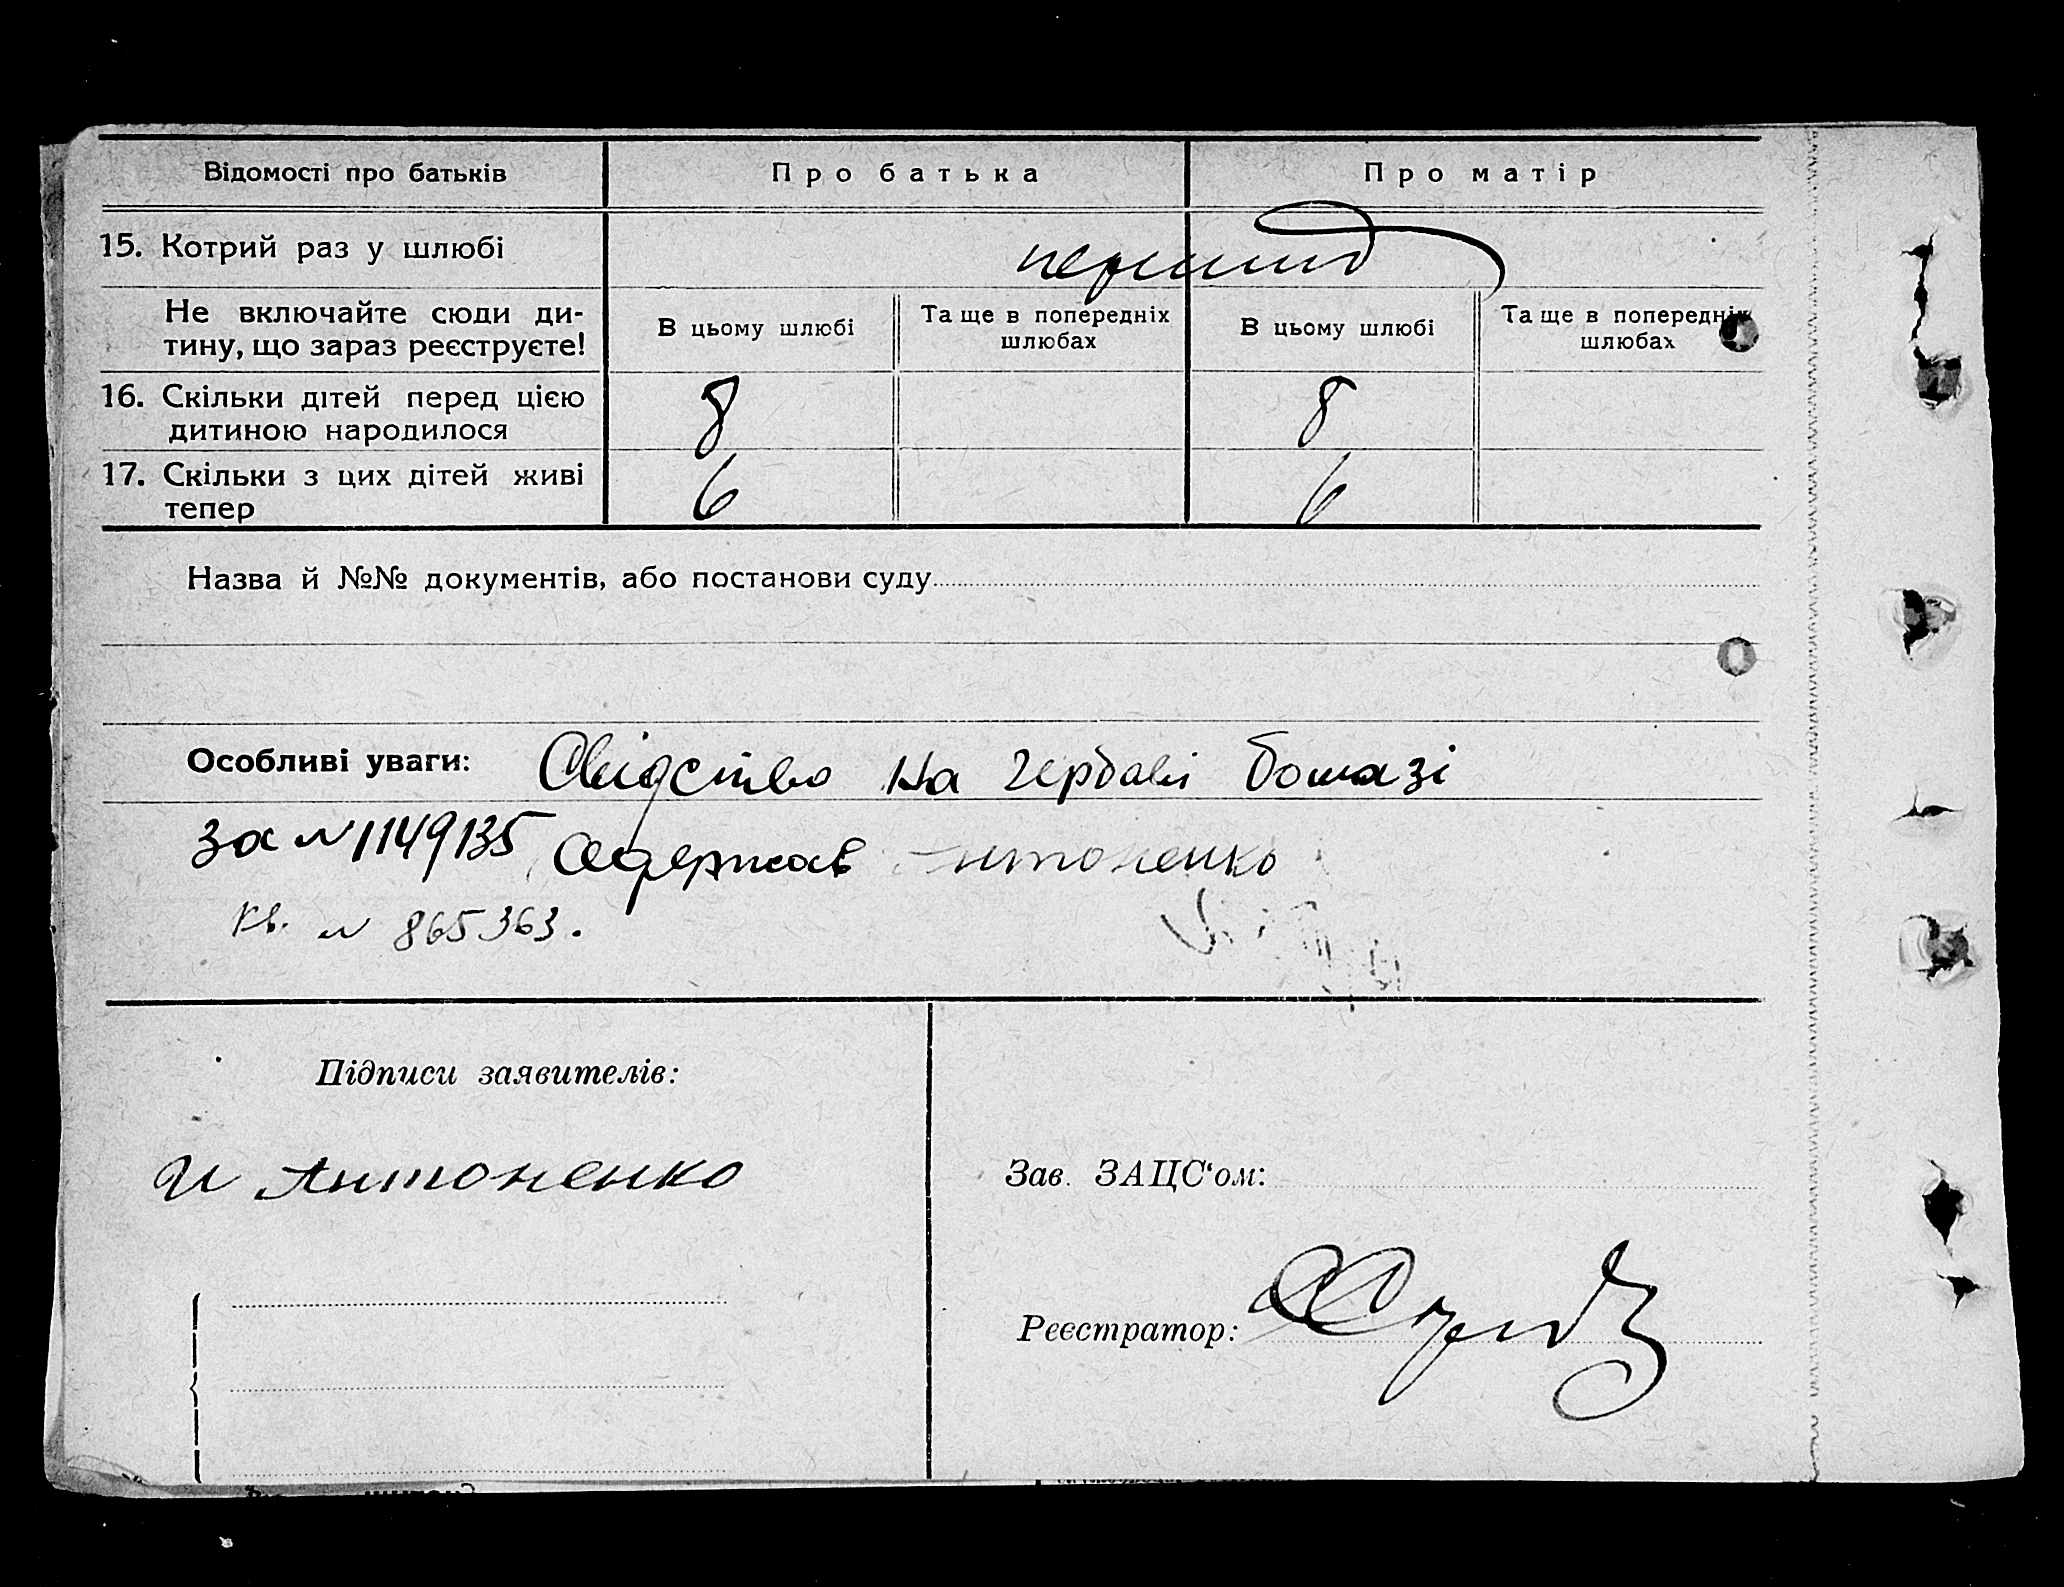 Відомості про батьків Про батька Про матір
15. Котрий раз у шлюбі перший
Не включайте сюди ди-
тину, що зараз реєструєте!
В цьому шлюбі Та ще в попередніх шлюбах В цьому шлюбі Та ще в попередніх шлюбах
16. Скільки дітей перед цією
дитиною народилося 8 8
17. Скільки з цих дітей живі
тепер 6 6
Назва й №№ документів, або постанови суду
Особливі уваги: Свідство на гербові бомазі
за № 1149135 Одержав Антоненко
кв. № 865363.
Підписи заявителів:
И Антоненко
Зав. ЗАЦС‘ом:
Реєстратор: